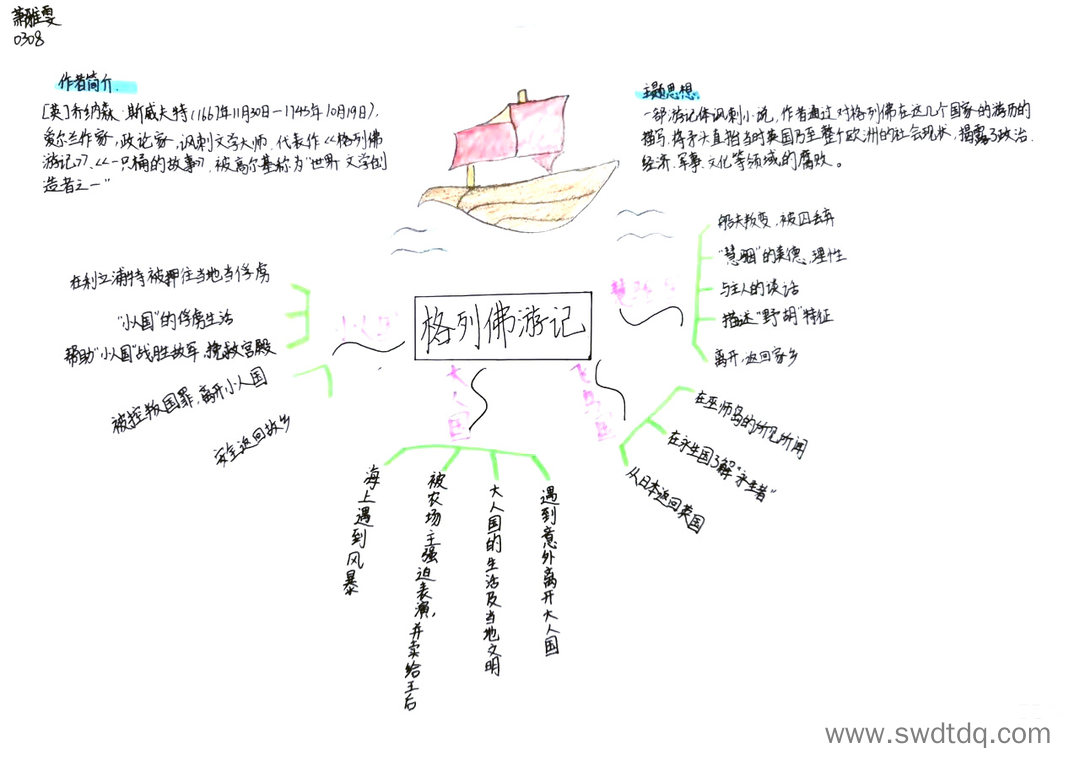 萧雅雯
0308
作者简介
[英]乔纳森·斯威夫特(1667年11月30日-1745年10月19日),
爱尔兰作家,政论家,讽刺文学大师,代表作《格列佛
游记》、《一只桶的故事》,被高尔基称为"世界文学创
造者之一"
主题思想
一部游记体讽刺小说,作者通过对格列佛在这几个国家的游历的
描写,将矛头直指当时英国乃至整个欧洲的社会现状,揭露了政治、
经济、军事、文化等领域的腐败。
格列佛游记
小人国
在利立浦特被押往当地当俘虏
"小人国"的俘虏生活
帮助"小人国"战胜敌军,挽救宫殿
被控叛国罪,离开小人国
安全返回故乡
大人国
海上遇到风暴
被农场主强迫表演,并卖给王后
大人国的生活及当地文明
遇到意外离开大人国
飞岛国
在巫师岛的所见所闻
在永生国了解"永生者"
从日本返回英国
慧骃国
船夫叛变,被囚丢弃
"慧骃"的美德,理性
与主人的谈话
描述"野胡"特征
离开,返回家乡
www.swdtdq.com